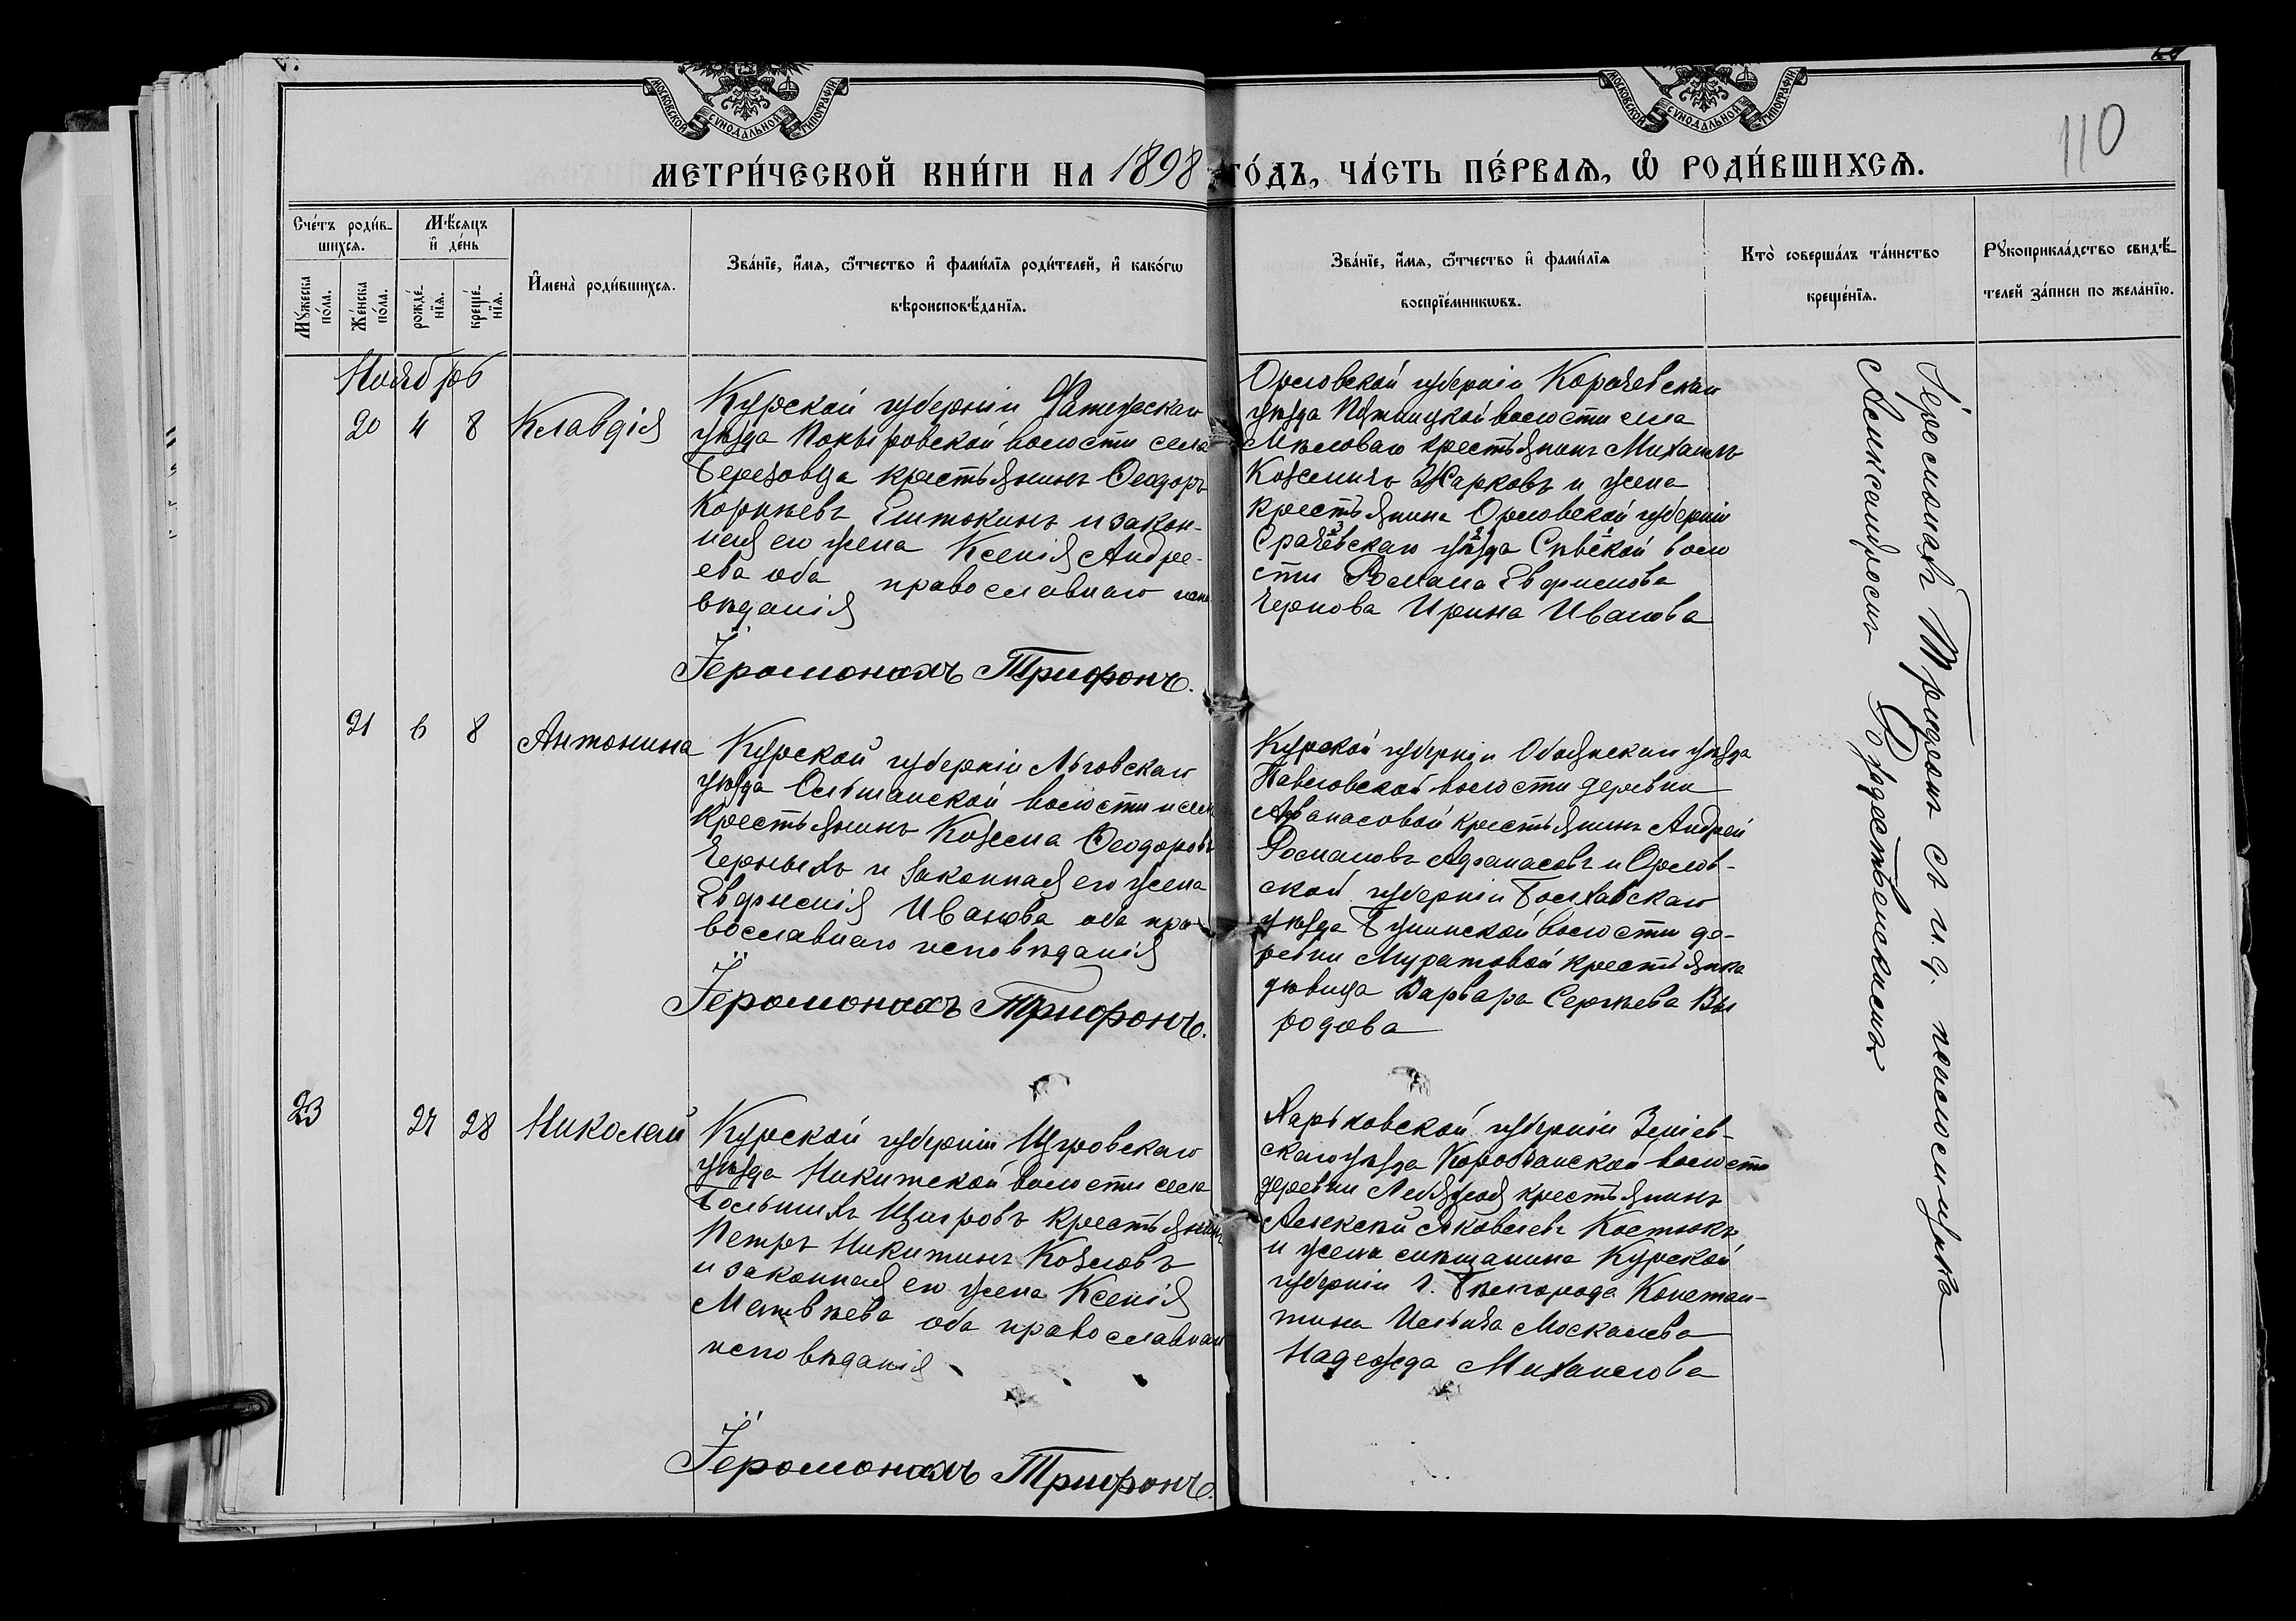 МОСКОВСКОЙ СѴНОДАЛЬНОЙ ТИПОГРАФІИ
МОСКОВСКОЙ СѴНОДАЛЬНОЙ ТИПОГРАФІИ
110
МЕТРИ́ЧЕСКОЙ КНИ́ГИ НА 1898 ГО́ДЪ, ЧА́СТЬ ПЕ́РВАЯ, Ѡ҆ РОДИ́ВШИХСЯ.
Сче́тъ роди́в-
шихся.
Мѣ́сяцъ
и҆ де́нь
Мꙋ́жеска по́ла.
Же́нска по́ла.
рожде́-нїя.
креще́-нїя.
И҆мена̀ роди́вшихся.
Зва́нїе, и҆́мя, ѻ҆́тчество и҆ фами́лїя роди́телей, и҆ како́гѡ
вѣроисповѣ́данїя.
Зва́нїе, и҆́мя, ѻ҆́тчество и҆ фами́лїя
воспрїе́мникѡвъ.
Кто̀ соверша́лъ та́инство
креще́нїя.
Рꙋкоприкла́дство свидѣ́-
телей за́писи по жела́нїю.
Ноябрь
20 4 8 Клавдія
Курской губерніи Фатежскаго
уѣзда Покыровской волости села
Березовца крестьянинъ Ѳеодоръ
Корнѣевъ и закон-
ная его жена Ксенія Андре-
ева оба православнаго испо
вѣданія
Іеромонахъ Трифонъ.
Орловской губерніи Корачевскаго
уѣзда волости села
крестьянинъ Михаилъ
Козьмичъ Жарковъ и жена
крестьянина Орловской губерніи
уѣзда воло
сти Романа Евфимова
Чернова Ирина Иванова
21 6 8 Антонина
Курской губерніи Льговскаго
уѣзда Ольшанской волости и села
крестьянинъ Козьма Ѳеодоровъ
Черныхъ и законная его жена
Евфимія Иванова оба пра
вославнаго исповѣданія
Іеромонахъ Трифонъ.
Курской губерніи Обоянскаго уѣзда
Павловской волости деревни
Афанасовой крестьянинъ Андрей
Романовъ Афанасовъ и Орлов-
ской губерніи Болховскаго
уѣзда волости де-
ревни Муратовой крестьянка
дѣвица Варвара Сергѣева Вы
родова
23 27 28 Николай
Курской губерніи Щигровскаго
уѣзда Никитской волости села
Большихъ Щигровъ крестьянинъ
Петръ Никитинъ Козловъ
и законная его жена Ксенія
Матвѣева оба православнаго
исповѣданія
Іеромонахъ Трифонъ.
Харьковской губерніи Зміев-
скаго уѣзда волости
деревни крестьянинъ
Алексѣй Яковлевъ Костюкъ
и жена мѣщанина Курской
губерніи г. Бѣлгорода Констан-
тина Ильича Москалева
Надежда Михаилова
Іеромонахъ Трифонъ съ и. д. псаломщика
Александромъ Рождественскимъ